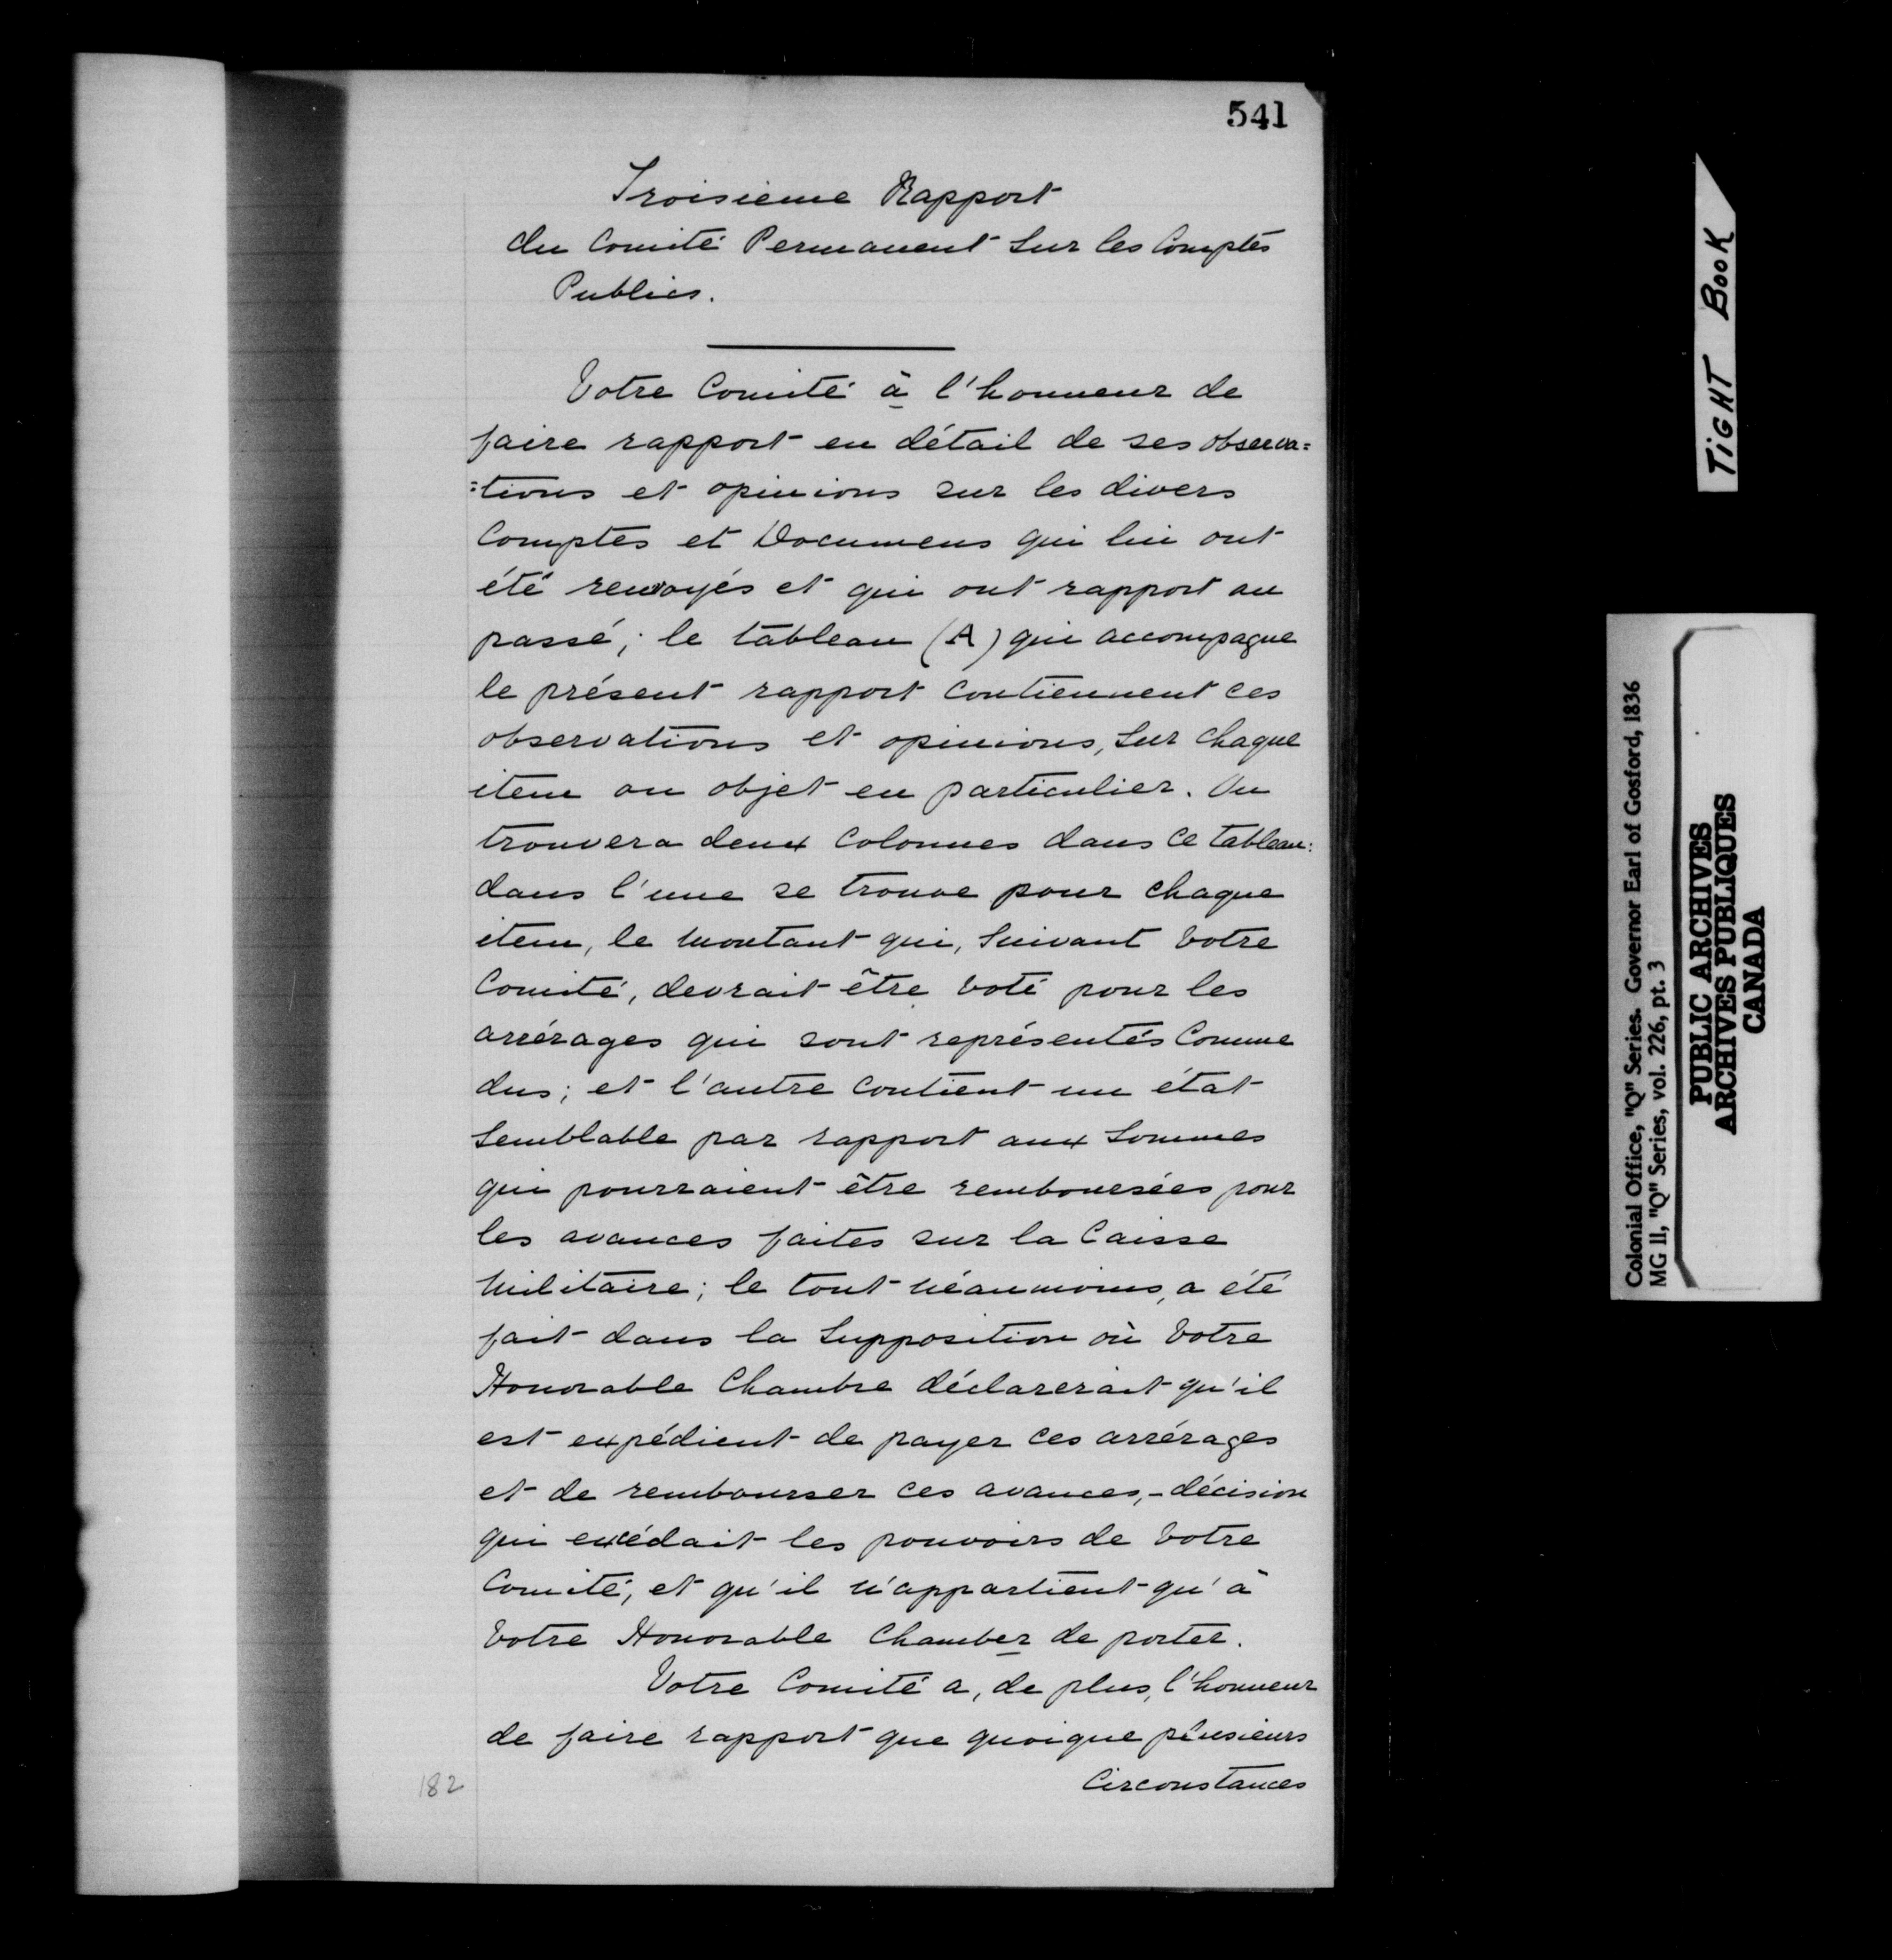 541
Troisieme Rapport
du Comité Permanent Sur les Comptes
Publics.
Votre Comité à l'honneur de
faire rapport en détail de ses observa=
=tions et opinions sur les divers
Comptes et Documens qui lui ont
été renvoyés et qui ont rapport au
passé; le tableau (A) qui accompagne
le présent rapport Contiennent ces
observations et opinions, Sur Chaque
item ou objet en particulier. On
trouvera deux Colonnes dans ce tableau:
dans l'une se trouve pour chaque
item, le Montant qui, Suivant Votre
Comité, devrait être Voté pour les
arrérages qui sont représentés Comme
dus; et l'autre Contient un état
Semblable par rapport aux Sommes
qui pourraient être remboursées pour
les avances faites sur la Caisse
Militaire; le tout néanmoins, a été
fait dans la Supposition où Votre
Honorable Chambre déclarerait qu'il
est expédient de payer ces arrérages
et de rembourser ces avances,-décision
qui excédait les pouvoirs de Votre
Comité, et qu'il n'appartient qu'à
Votre Honorable Chamber de porter.
Votre Comité a, de plus, l'honneur
de faire rapport que quoique plusieurs
Circonstances
182
TIGHT BOOK
Colonial Office, "Q" Series. Governor Earl of Gosford, 1836
MG 11, "Q" Series, vol. 226, pt. 3
PUBLIC ARCHIVES
ARCHIVES PUBLIQUES
CANADA